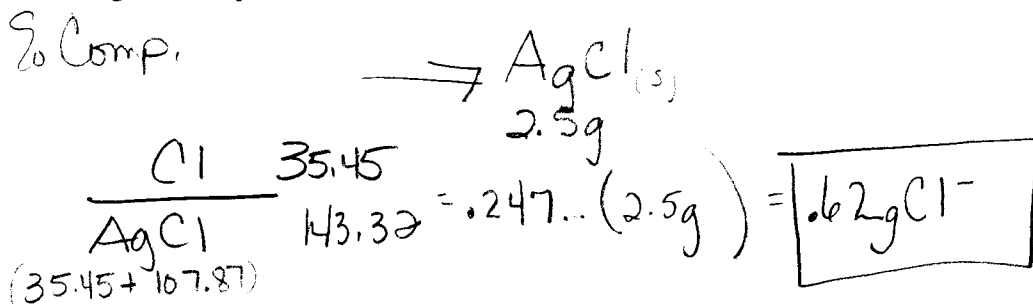 % Comp.
→ AgCl(s)
2.5g
Cl 35.45
AgCl 143.32 = .247... (2.5g) = .62gCl⁻
(35.45 + 107.87)